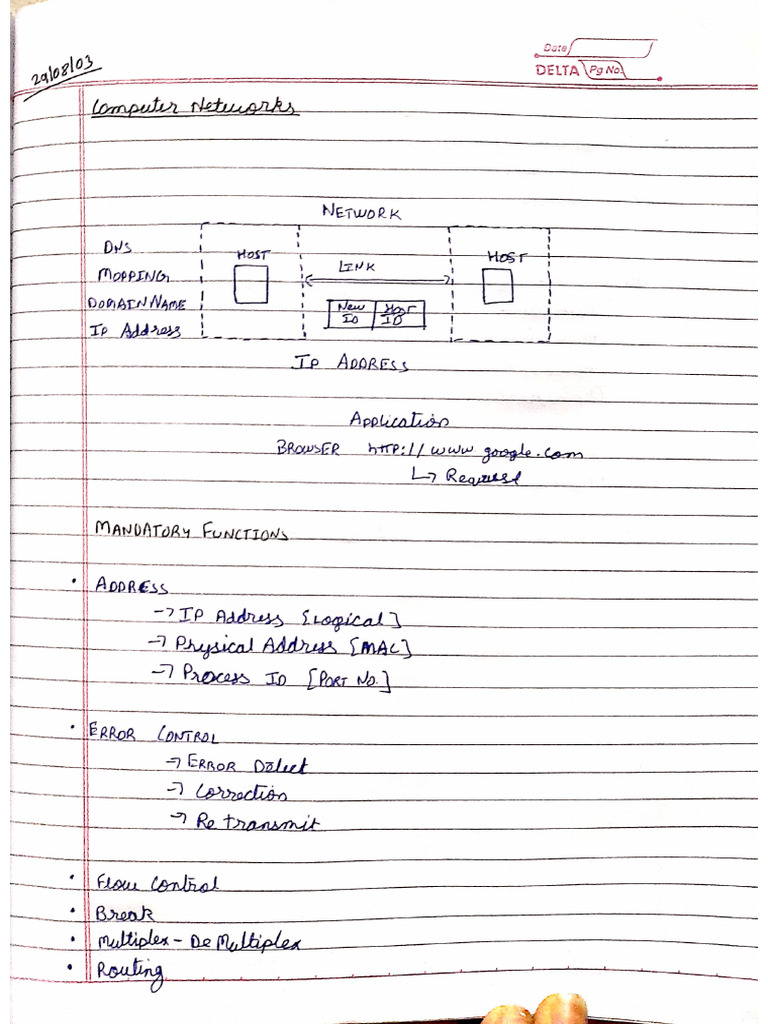 29/08/03
Date
DELTA Pg No.
Computer Networks
NETWORK
DNS
HOST
HOST
LINK
MOPPING
DOMAIN NAME
New Host
ID ID
IP Address
IP ADDRESS
Application
BROWSER http://www google.com
↳ Request
MANDATORY FUNCTIONS
• ADDRESS
→ IP Address [Logical]
→ Physical Address [MAC]
→ Process ID [PORT NO.]
• ERROR CONTROL
→ ERROR Detect
→ Correction
→ Re transmit
• Flow Control
• Break
• Multiplex - De Multiplex
• Routing